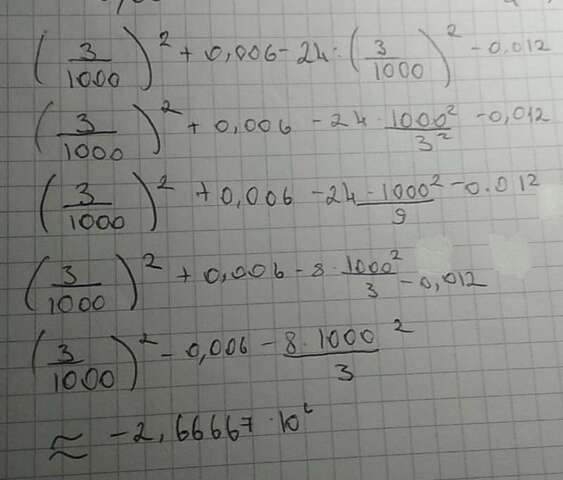 (3/1000)² + 0,006 - 24 : (3/1000)² - 0,012
(3/1000)² + 0,006 - 24 · 1000²/3² - 0,012
(3/1000)² + 0,006 - 24 · 1000²/9 - 0.012
(3/1000)² + 0,006 - 8 · 1000²/3 - 0,012
(3/1000)² - 0,006 - 8 · 1000²/3
≈ -2,66667 · 10⁶